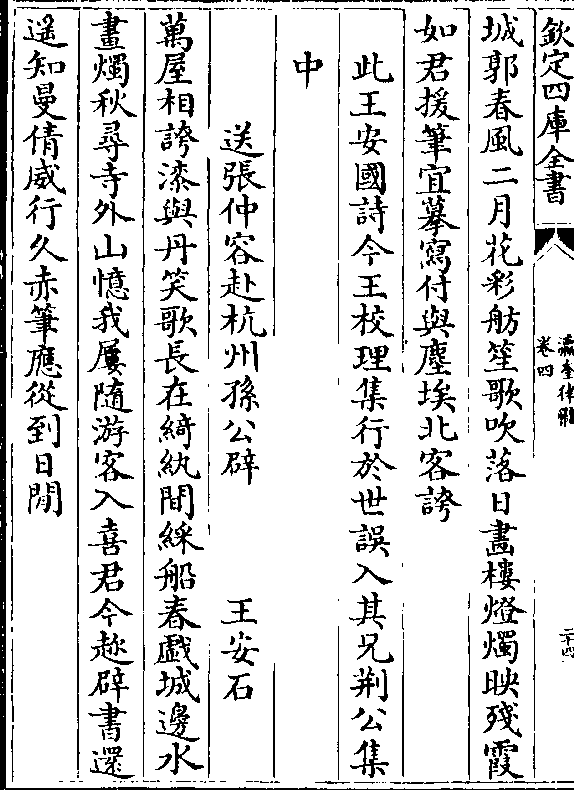 欽定四庫全書
瀛奎律髓
卷四
二十四
城郭春風二月花彩舫笙歌吹落日畫樓燈燭映殘霞
如君援筆宜摹寫付與塵埃北客誇
此王安國詩今王校理集行於世誤入其兄荆公集
中
送張仲容赴杭州孫公辟 王安石
萬屋相誇漆與丹笑歌長在綺紈間綵船春戲城邊水
畫燭秋尋寺外山憶我屢隨游客入喜君今趂辟書還
遥知曼倩威行久赤筆應從到日閒